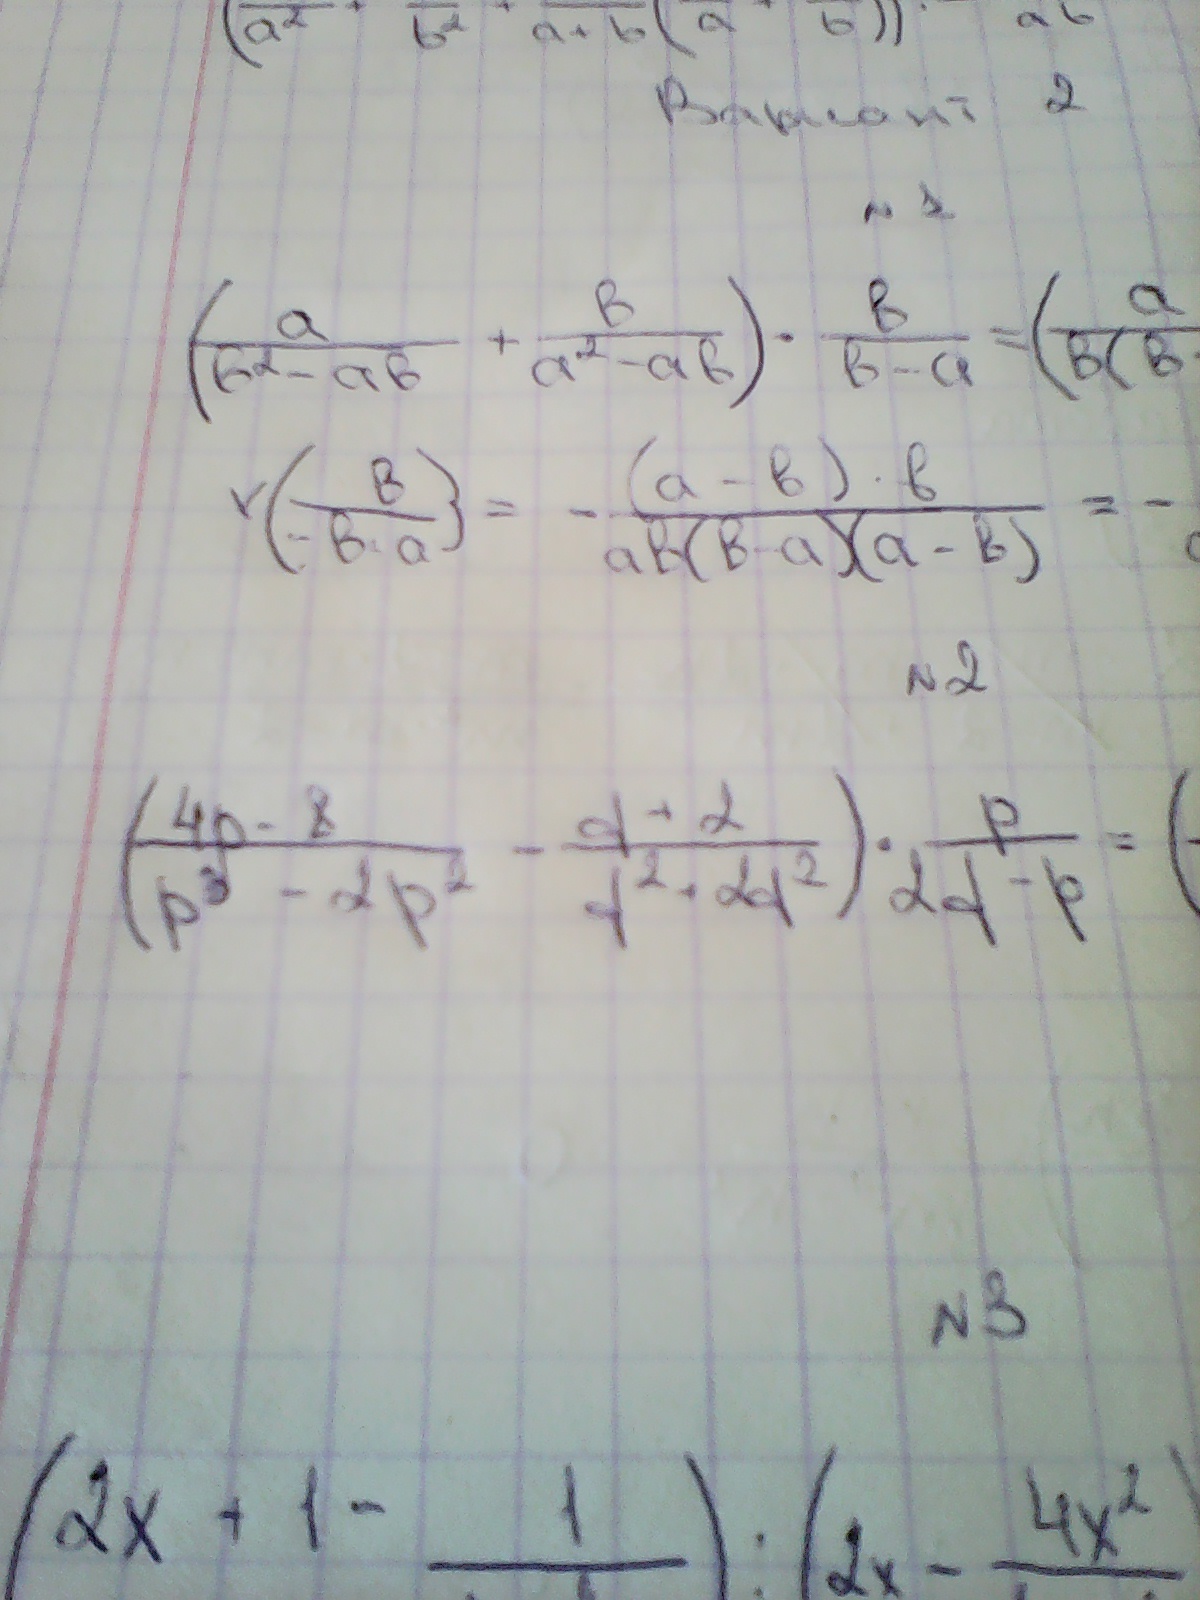 (/a² + /b² + /a+b(/a + /b)) · ab
Вариант 2
N 1
(a/b²-ab + b/a²-ab) · b/b-a = (a/b(b-
(-b/-b-a) = - (a-b)·b/ab(b-a)(a-b) = -
N2
(4p-8/p³-2p² - q+2/q²+2q²) · p/2q-p = (
N3
(2x+1- 1/) : (2x - 4x²/